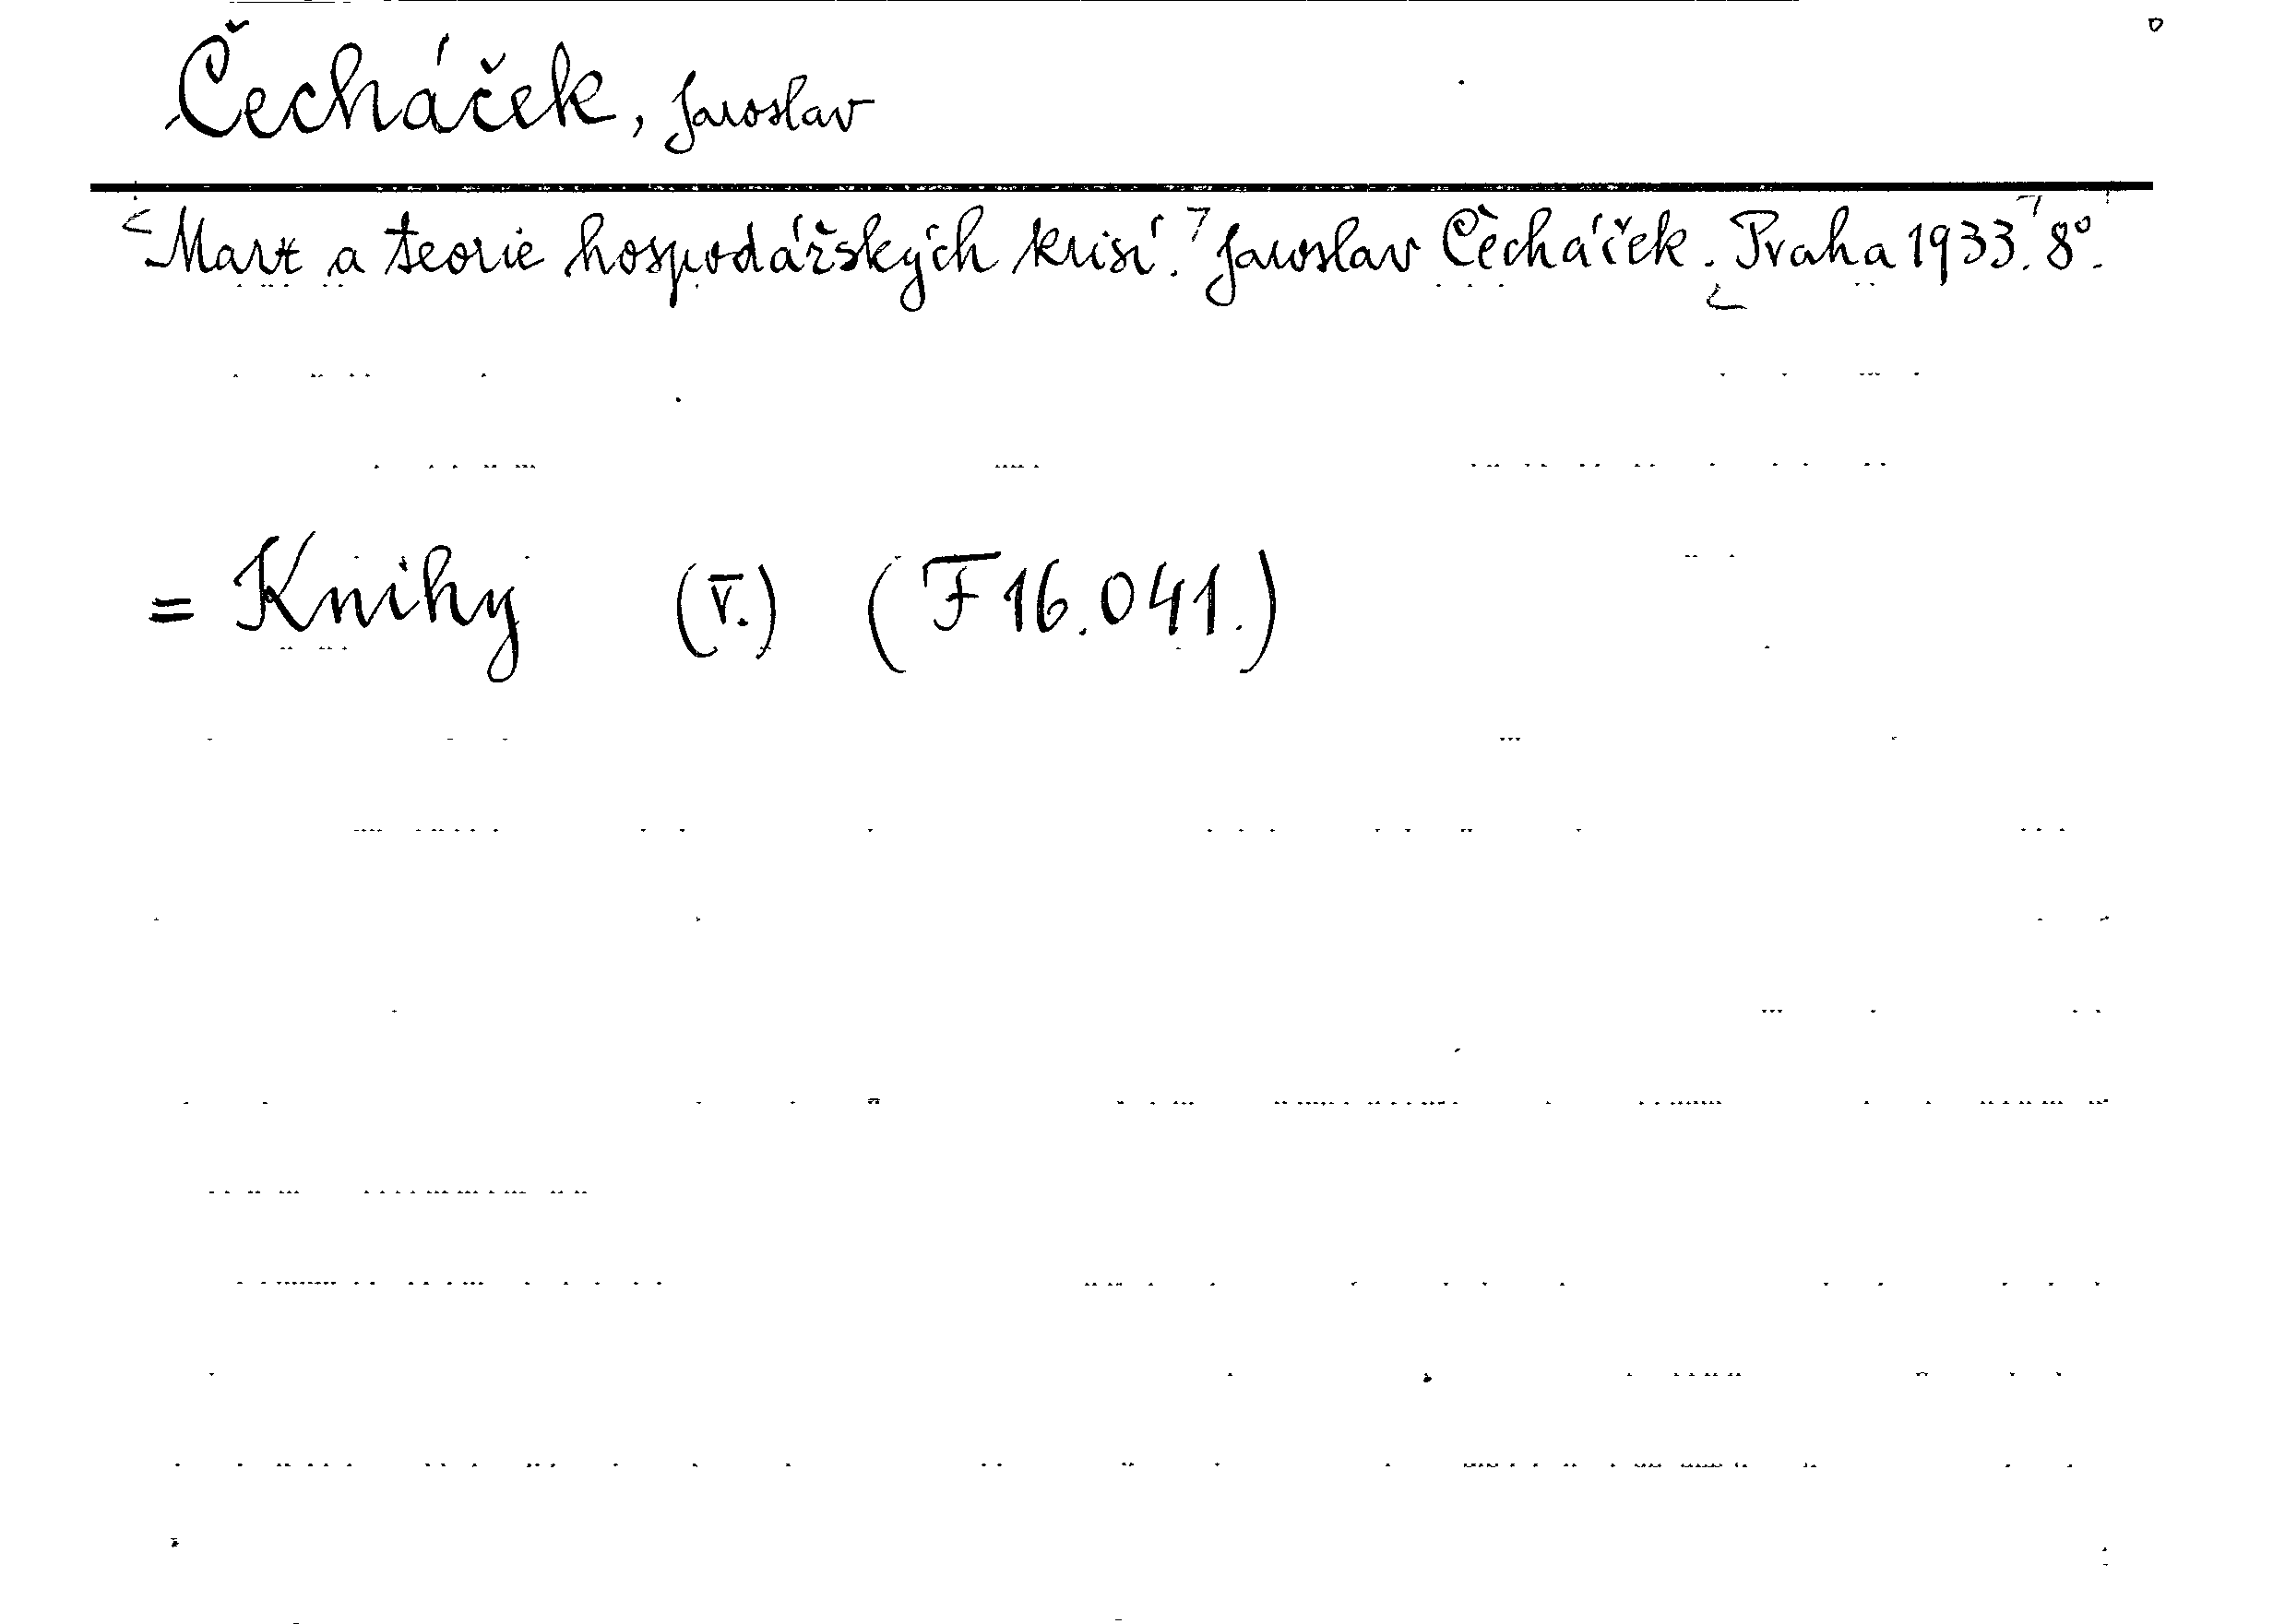 Čecháček, Jaroslav
Marx a teorie hospodářských krisí. Jaroslav Čecháček. Praha 1933. 8°.
= Knihy (V.) (F 16.041.)